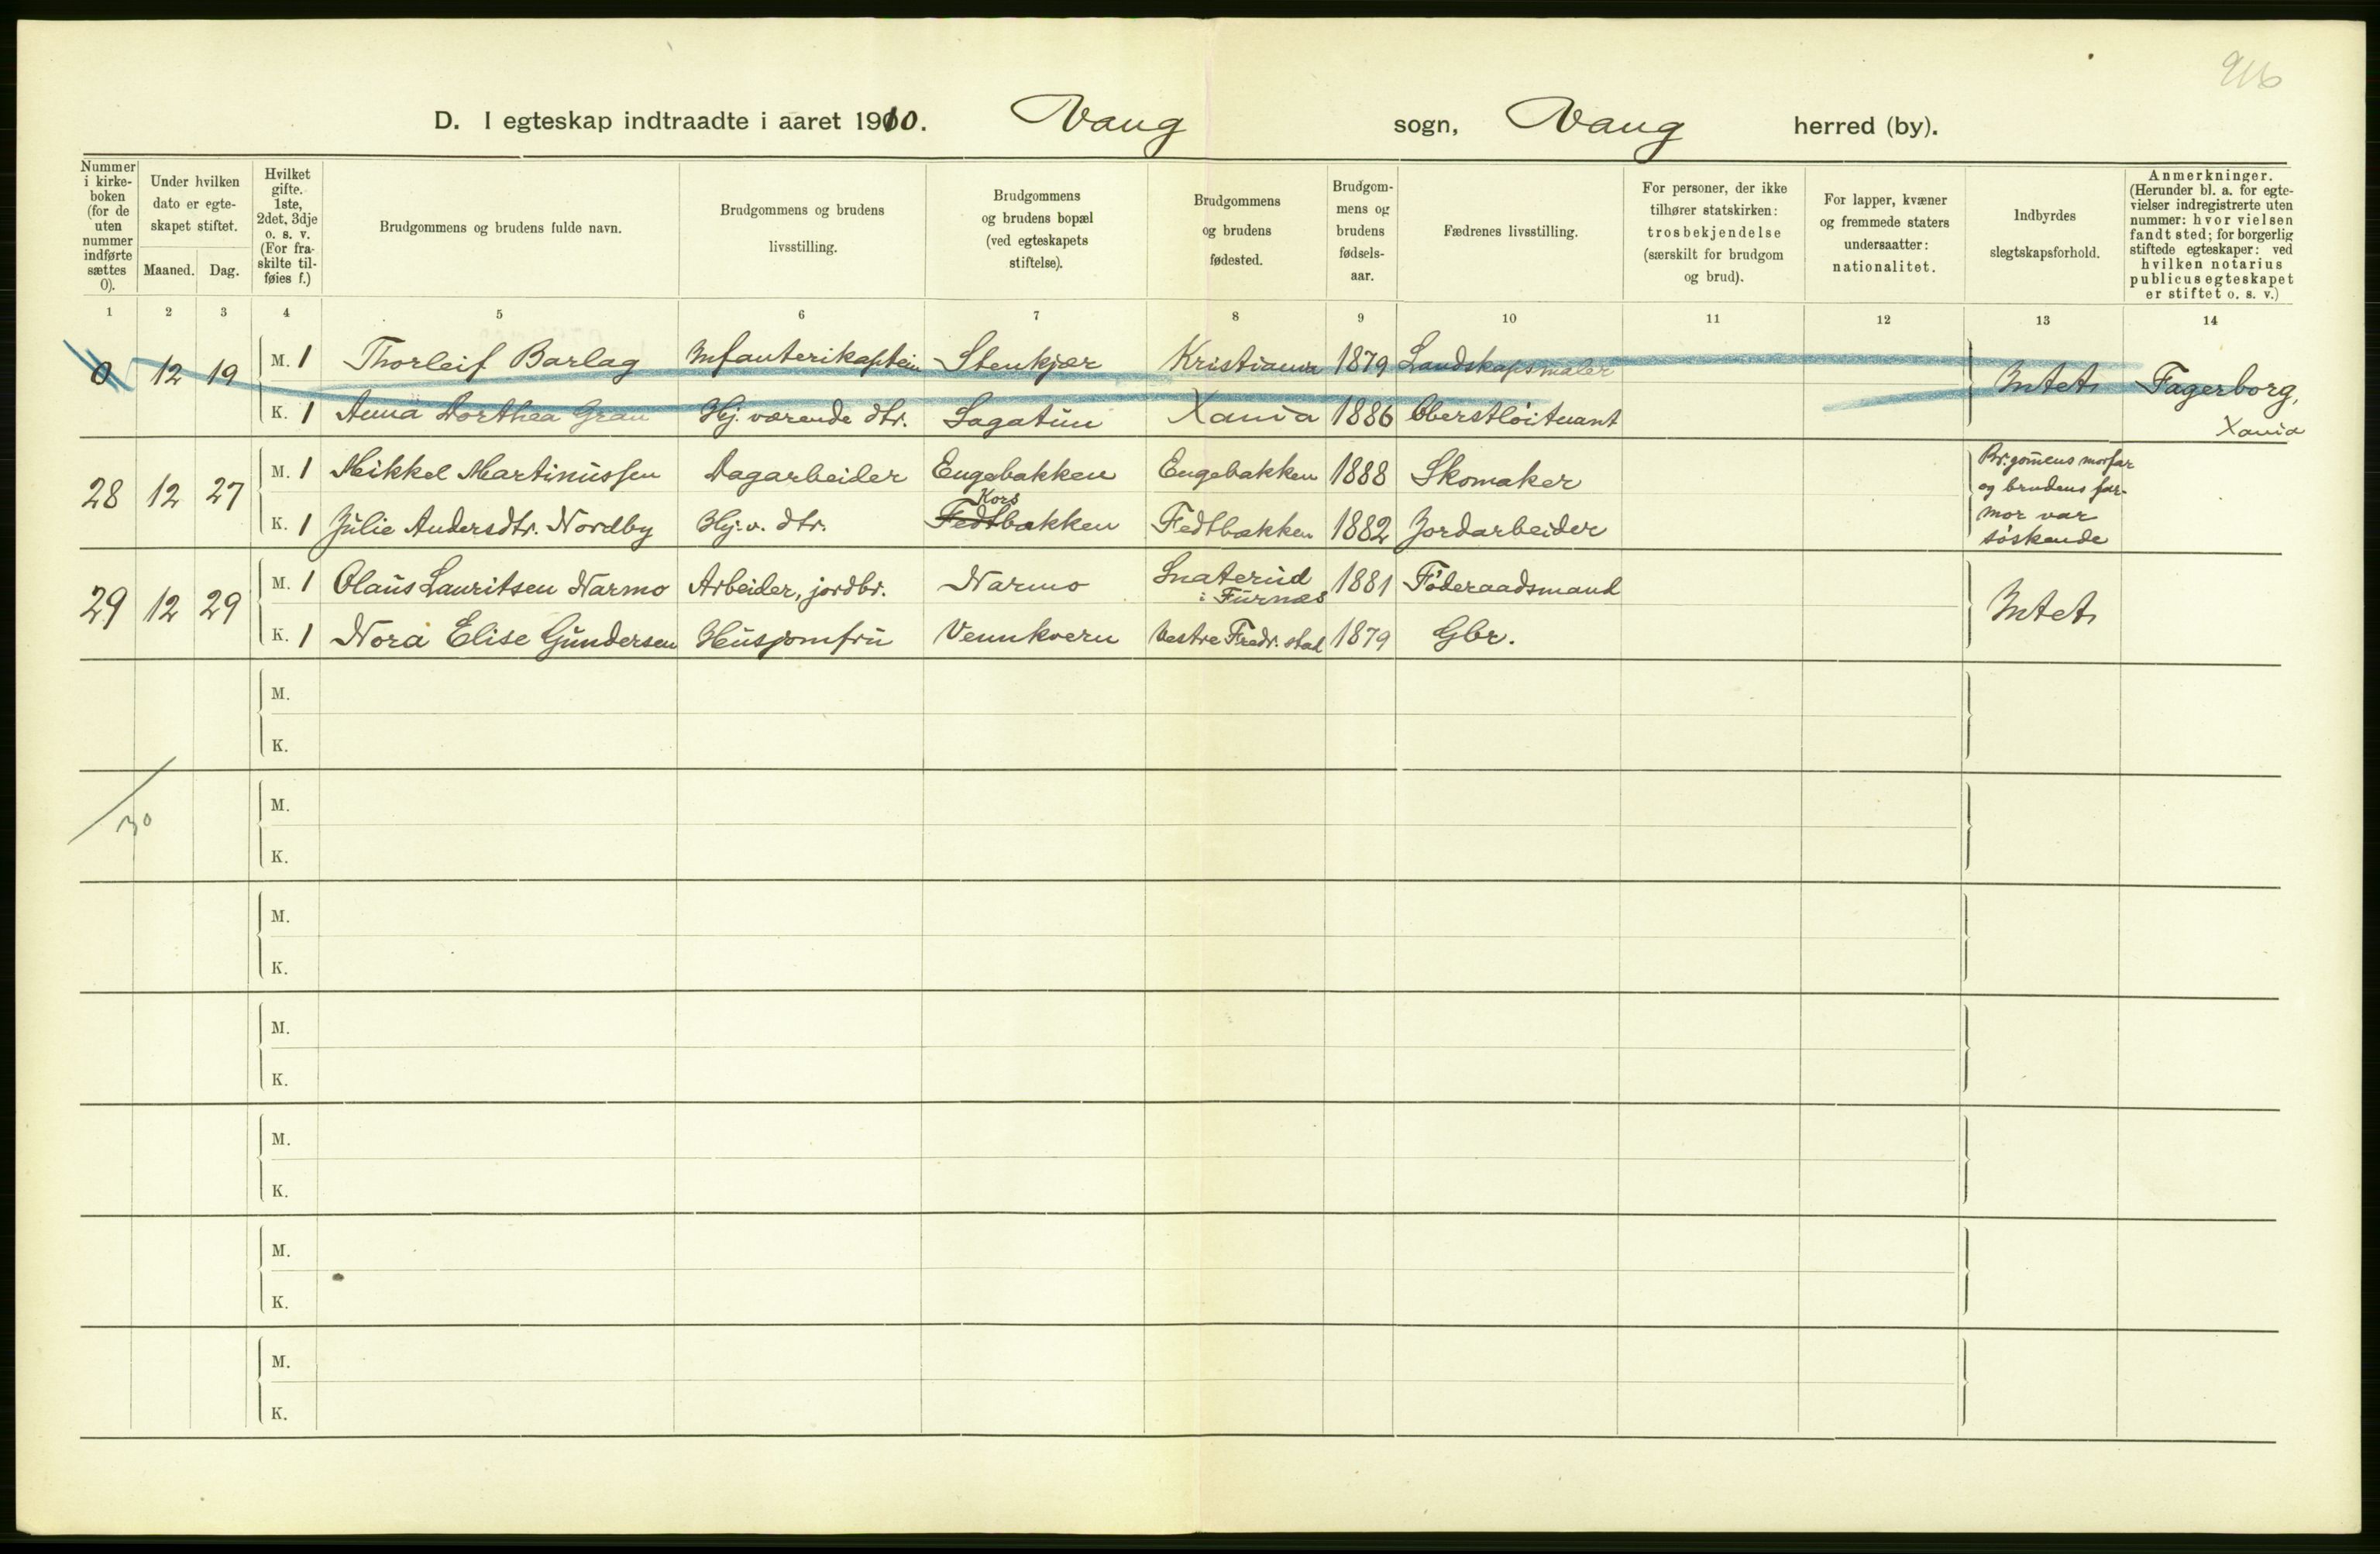 916
D. I egteskap indtraadte i aaret 1910. Vang sogn, Vang herred (by).
Nummer i kirke-boken (for de uten nummer indførte sættes 0).
Under hvilken dato er egte-skapet stiftet.
Maaned. Dag.
Hvilket gifte. 1ste, 2det, 3dje o. s. v. (For fra-skilte til-føies f.)
Brudgommens og brudens fulde navn.
Brudgommens og brudens livsstilling.
Brudgommens og brudens bopæl (ved egteskapets stiftelse).
Brudgommens og brudens fødested.
Brudgom-mens og brudens fødsels-aar.
Fædrenes livsstilling.
For personer, der ikke tilhører statskirken: trosbekjendelse (særskilt for brudgom og brud).
For lapper, kvæner og fremmede staters undersaatter: nationalitet.
Indbyrdes slegtskapsforhold.
Anmerkninger. (Herunder bl. a. for egte-vielser indregistrerte uten nummer: hvor vielsen fandt sted; for borgerlig stiftede egteskaper: ved hvilken notarius publicus egteskapet er stiftet o. s. v.)
1 2 3 4 5 6 7 8 9 10 11 12 13 14
0 12 19 M. 1 Thorleif Barlag Infanterikaptein Stenkjær Kristiania 1879 Landskapsmaler Intet Fagerborg,
K. 1 Anna Dorthea Gran Hj. værende dtr. Sagatun Xania 1886 Oberstløitnant Xania
28 12 27 M. 1 Mikkel Martinussen Dagarbeider Engebakken Engebakken 1888 Skomaker Br.gomens morfar
og brudens far-
Kors
K. 1 Julie Andersdtr. Nordby Hj. v. dtr. Fedtbakken Fedtbakken 1882 Jordarbeider mor var
søskende
29 12 29 M. 1 Olaus Lauritsen Narmo Arbeider, jordbr. Narmo Snaterud 1881 Føderaadsmand Intet
i Furnes
K. 1 Nora Elise Gundersen Husjomfru Vennkvern Vestre Fredr. stad 1879 Gbr.
M.
K.
30
M.
K.
M.
K.
M.
K.
M.
K.
M.
K.
M.
K.